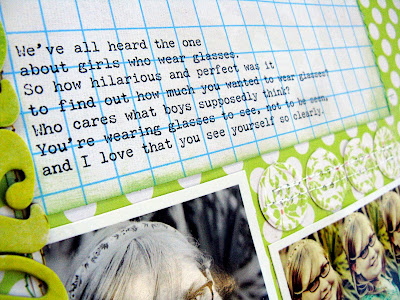 We've all heard the one
about girls who wear glasses.
So how hilarious and perfect was it
to find out how much you wanted to wear glasses?
Who cares what boys supposedly think?
You're wearing glasses to see, not to be seen,
and I love that you see yourself so clearly.